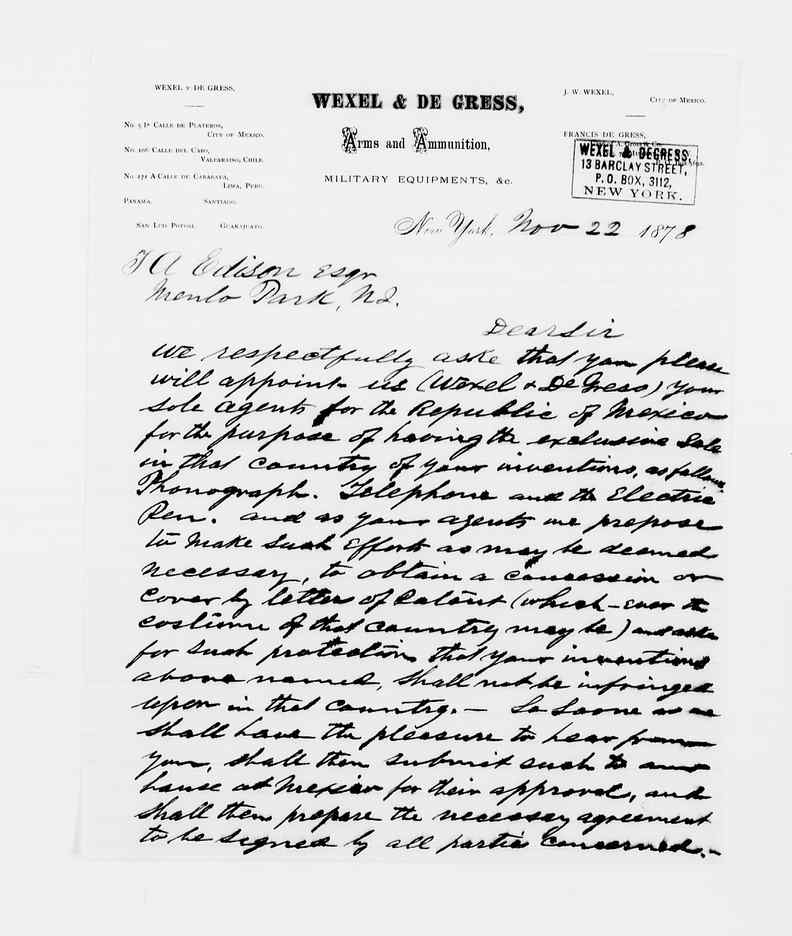 WEXEL & DE GRESS,
No. 5 1a Calle de Plateros,
City of Mexico.
No. 106 Calle del Cabo,
Valparaiso, Chile.
No. 171 A Calle de Carabaya,
Lima, Peru.
Panama. Santiago.
San Luis Potosi. Guanajuato.
WEXEL & DE GRESS,
Arms and Ammunition,
MILITARY EQUIPMENTS, &c.
J. W. WEXEL,
City of Mexico.
FRANCIS DE GRESS,
WEXEL & DEGRESS,
13 BARCLAY STREET,
P. O. BOX, 3112,
NEW YORK.
New York, Nov 22 1878
T A Edison Esqr
Menlo Park, N.J.
Dear Sir
We respectfully aske that you please
will appoint us (Wexel & De Gress) your
sole agents for the Republic of Mexico
for the purpose of having the exclusive Sale
in that country of your inventions, as follows,
Phonograph. Telephone and the Electric
Pen. and as your agents we propose
to make such Efforts as may be deemed
necessary, to obtain a concession or
cover by letters of Patent (which-ever the
costume of that country may be) and aske
for such protection that your inventions
above named, shall not be infringed
upon in that country. — So Soone as we
shall have the pleasure to hear from
you, shall then submit such to our
house at Mexico for their approval, and
shall then prepare the necessary agreement
to be signed by all parties concerned. —